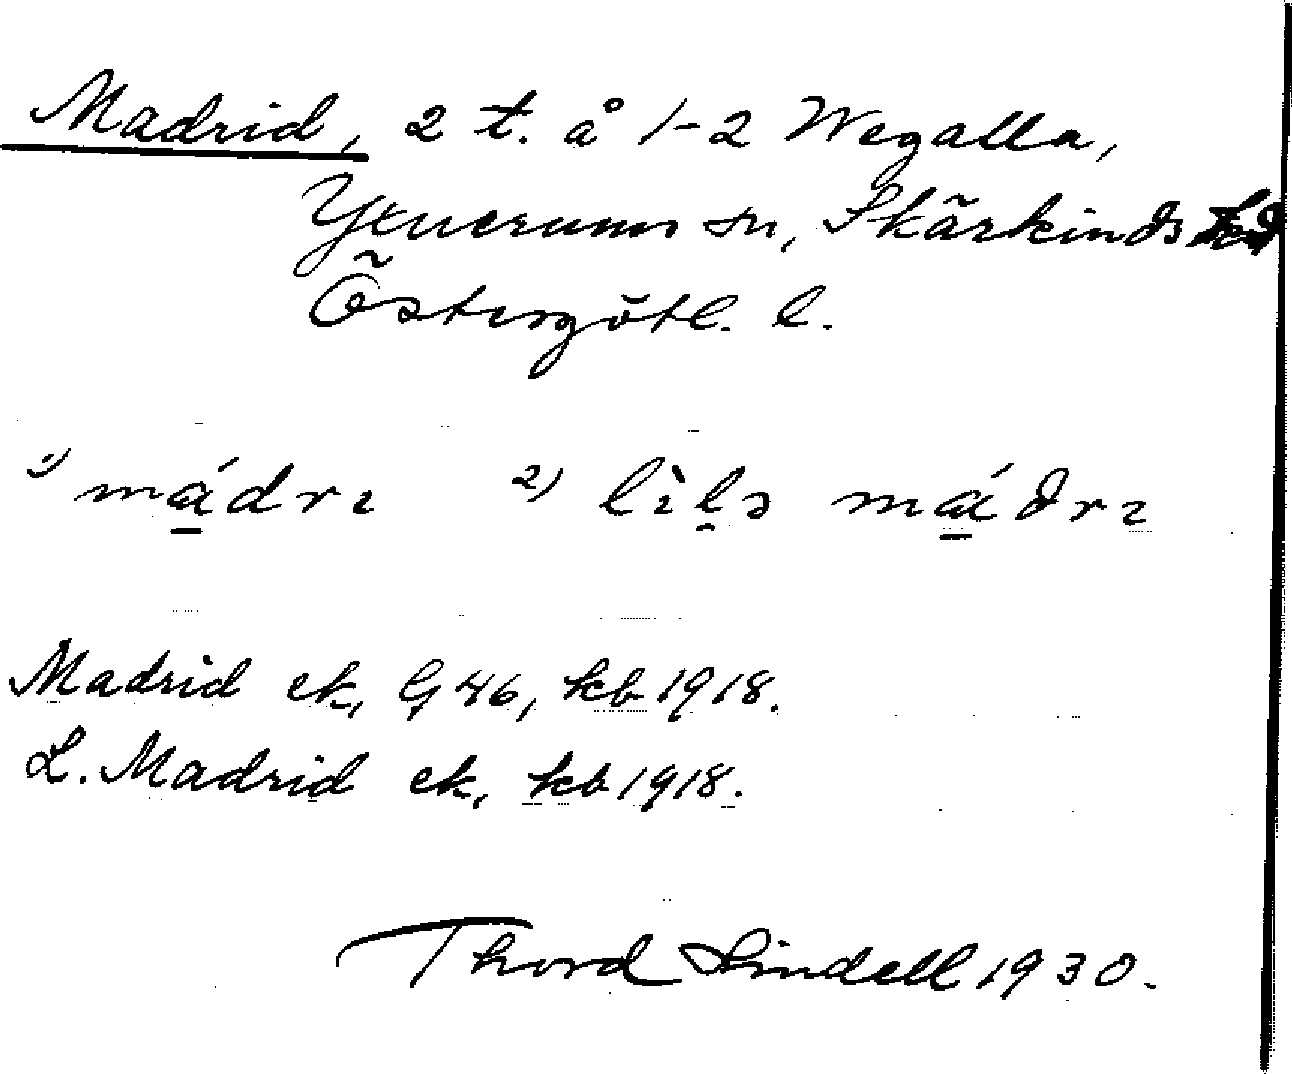 Madrid, 2 t. å 1-2 Wegalla,
Yxnerums sn, Skärkinds hd
Östergötl. l.
1) mádrɩ 2) lìlə máдrɩ
Madrid ek, G 46, kb 1918.
L. Madrid ek, kb 1918.
Thord Lindell 1930.